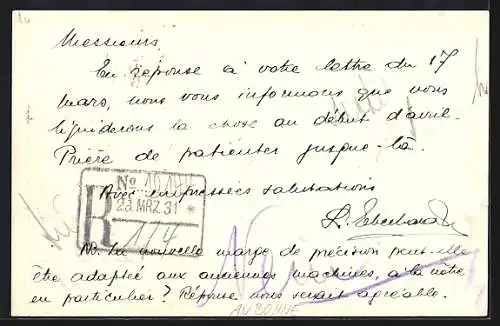 Messieurs,
En réponse à votre lettre du 17
mars, nous vous informons que nous
liquiderons la chose au début d'avril.
Prière de patienter jusque-là.
Avec empressées salutations
No
R
23. MRZ. 31 *
1/4
NB. La nouvelle marge de précision peut-elle
être adaptée aux anciennes machines, à la nôtre
en particulier? Réponse nous serait agréable.
AUBONNE